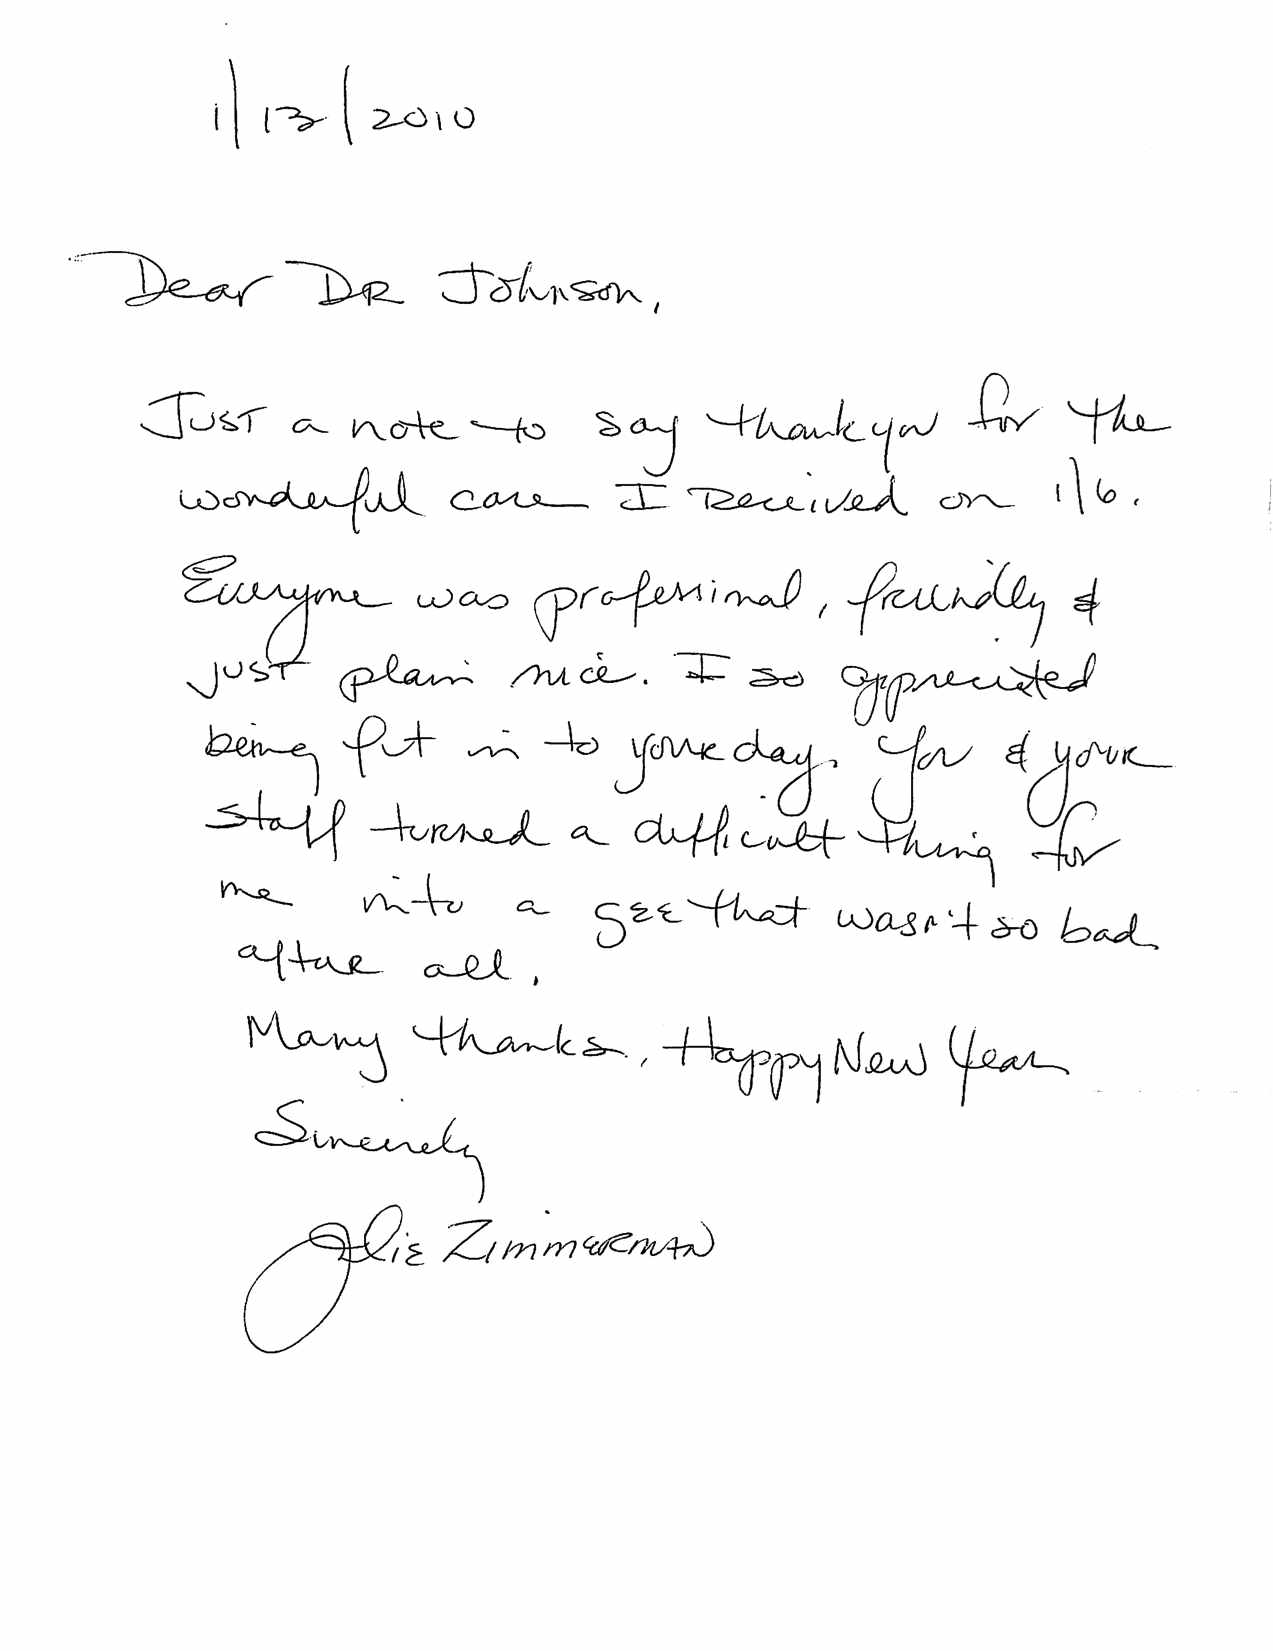 1/13/2010
Dear DR Johnson,
Just a note to say thank you for the
wonderful care I Received on 1/6.
Everyone was professional, friendly &
just plain nice. I so appreciated
being put in to your day. You & your
staff turned a difficult thing for
me into a gee that wasn't so bad
after all.
Many thanks, Happy New Year
Sincerely
Julie Zimmerman